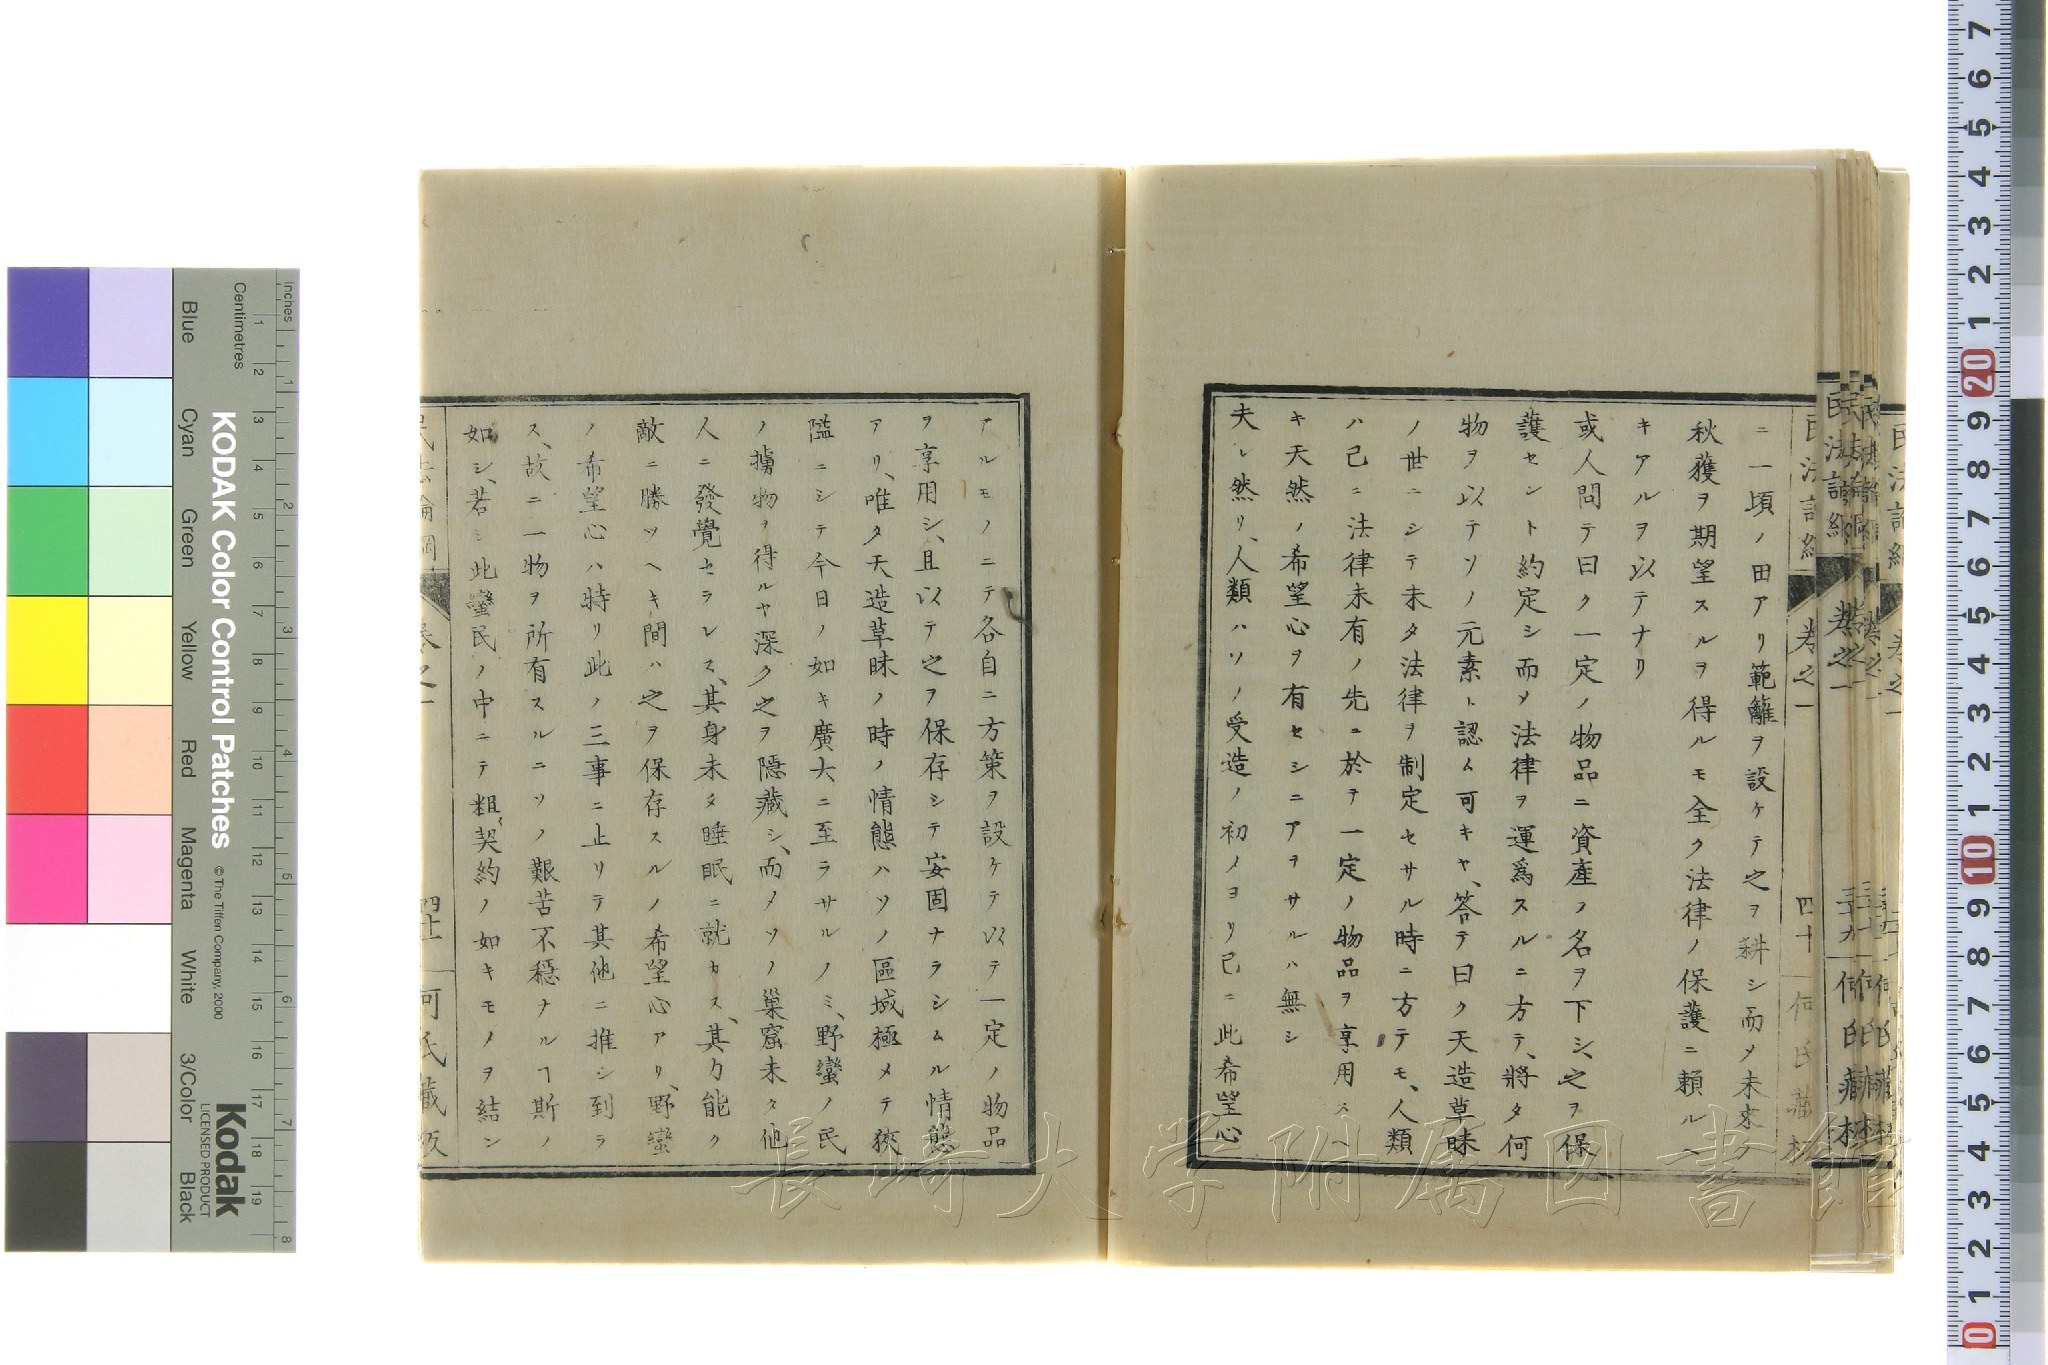 ニ一頃ノ田アリ範籬ヲ設ケテ之ヲ耕シ而メ未来ノ
秋獲ヲ期望スルヲ得ルモ全ク法律ノ保護ニ頼ルヘ
キアルヲ以テナリ
或人問テ曰ク一定ノ物品ニ資產ノ名ヲ下シ、之ヲ保
護セント約定シ而メ法律ヲ運爲スルニ方テ、將タ何
物ヲ以テソノ元素ト認ム可キヤ、答テ曰ク天造草昧
ノ世ニシテ未タ法律ヲ制定セサル時ニ方テモ、人類
ハ已ニ法律未有ノ先ニ於テ一定ノ物品ヲ享用スヘ
キ天然ノ希望心ヲ有セシニアラサルハ無シ
夫レ然リ、人類ハソノ受造ノ初メヨリ已ニ此希望心
アルモノニテ各自ニ方策ヲ設ケテ以テ一定ノ物品
ヲ享用シ、且以テ之ヲ保存シテ安固ナラシムル情態
アリ、唯タ天造草昧ノ時ノ情態ハソノ區域極メテ狹
隘ニシテ今日ノ如キ廣大ニ至ラサルノミ、野蠻ノ民
ノ擄物ヲ得ルヤ深ク之ヲ隠藏シ、而メソノ巢窟未タ他
人ニ發覺セラレス、其身未タ睡眠ニ就カス、其力能ク
敵ニ勝ツヘキ間ハ之ヲ保存スルノ希望心アリ、野蠻
ノ希望心ハ特リ此ノ三事ニ止リテ其他ニ推シ到ラ
ス、故ニ一物ヲ所有スルニソノ艱苦不穩ナルヿ斯ノ
如シ、若シ此蠻民ノ中ニテ粗〻契約ノ如キモノヲ結ン
民法論綱 卷之一 四十一 何氏藏版
卷之一 四十 何氏藏
長崎大学附属図書館
KODAK Color Control Patches
© The Tiffen Company, 2000
Kodak
LICENSED PRODUCT
Inches
Centimetres
Blue Cyan Green Yellow Red Magenta White 3/Color Black
1 2 3 4 5 6 7 8 9 10 11 12 13 14 15 16 17 18 19
1 2 3 4 5 6 7 8
7 6 5 4 3 2 1 20 9 8 7 6 5 4 3 2 1 10 9 8 7 6 5 4 3 2 1 0